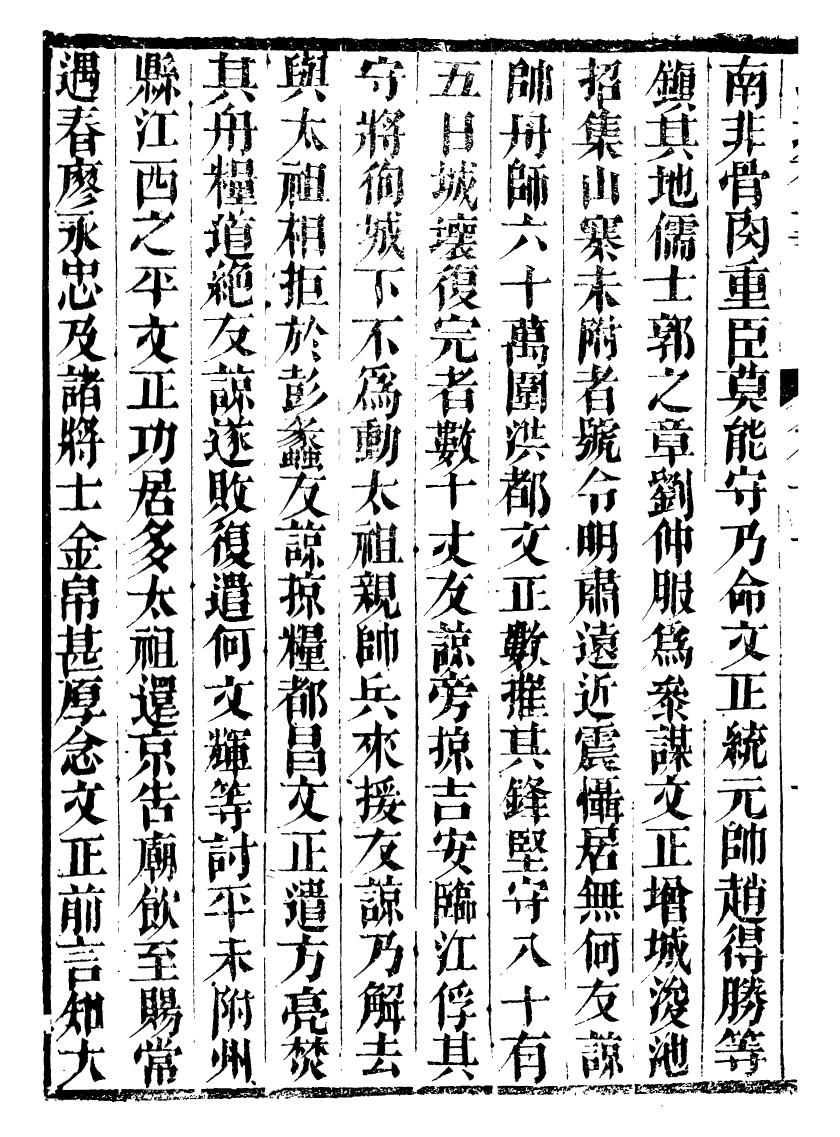 南非骨肉重臣莫能守乃命文正統元帥趙得勝等
鎮其地儒士郭之章劉仲服爲參謀文正增城浚池
招集山寨未附者號令明肅遠近震懾居無何友諒
帥舟師六十萬圍洪都文正數摧其鋒堅守八十有
五日城壞復完者數十丈友諒旁掠吉安臨江俘其
守將徇城下不爲動太祖親帥兵來援友諒乃解去
與太祖相拒於彭蠡友諒掠糧都昌文正遣方亮焚
其舟糧道絕友諒遂敗復遣何文輝等討平未附州
縣江西之平文正功居多太祖還京告廟飲至賜常
遇春廖永忠及諸將士金帛甚厚念文正前言知大